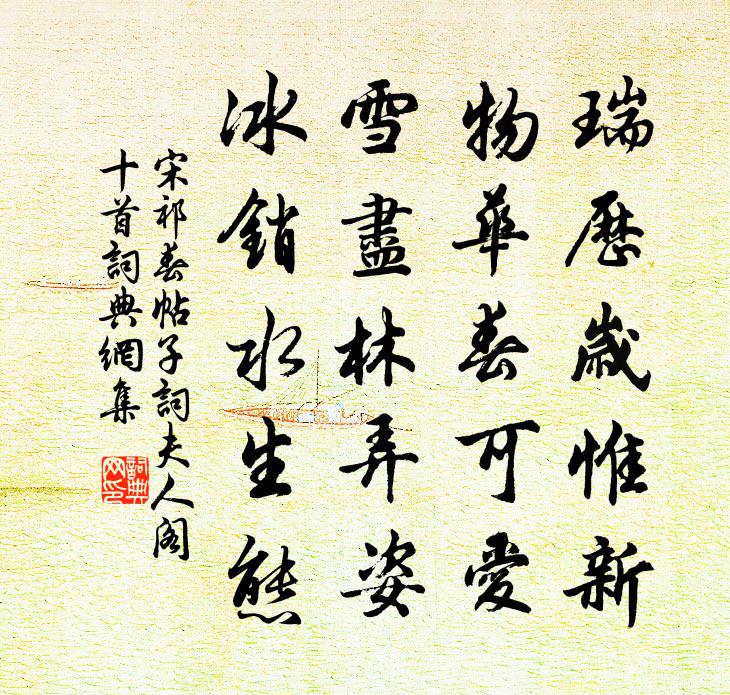 瑞歷歲惟新
物華春可愛
雪盡林弄姿
冰銷水生態
宋祁春帖子詞夫人閣
十首詞典網集
詞典
网印